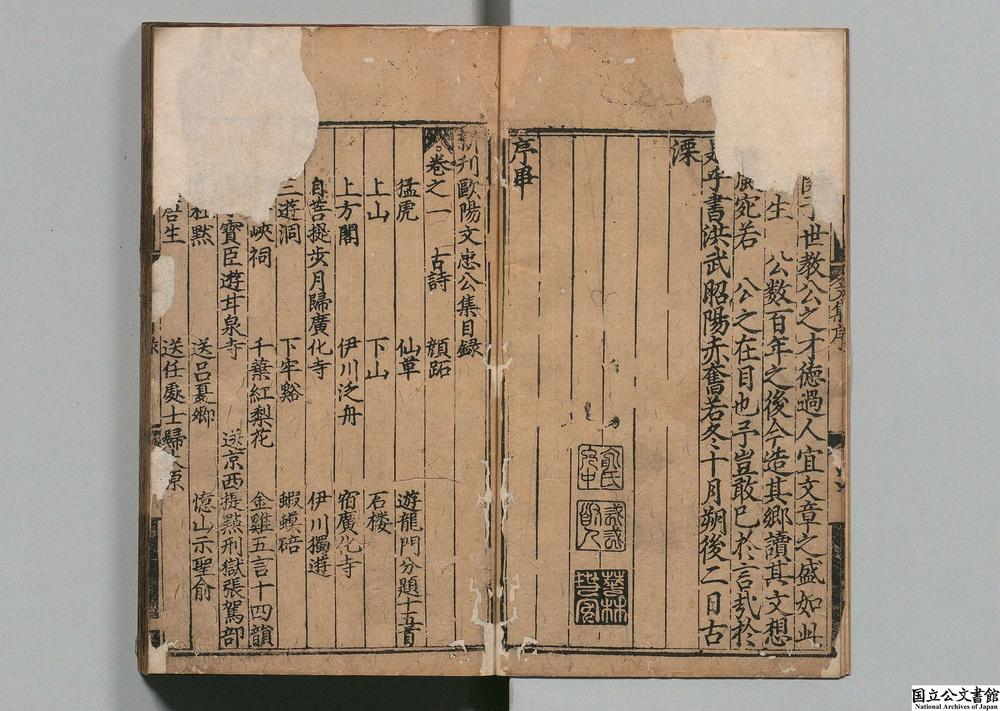 世教公之才德過人宜文章之盛如此
生　公数百年之後今造其鄉讀其文想
宛若　公之在目也予豈敢已於言㢤於
乎書洪武昭陽赤奮若冬十月朔後二日古
溧
序畢
新刋歐陽文忠公集目録
卷之一　古詩　顔跖
猛虎　仙草　遊龍門分題十五首
上山　下山　石楼
上方閣　伊川泛舟　宿廣化寺
自菩提步月歸廣化寺　伊川獨遊
三遊洞　下牢谿　蝦蟆碚
峽祠　千葉紅梨花　金雞五言十四韻
寳臣遊甘泉寺　送京西提㸃刑獄張駕部
黙　送吕夏卿　憶山示聖俞
生　送任處士歸太原
国立公文書館
National Archives of Japan